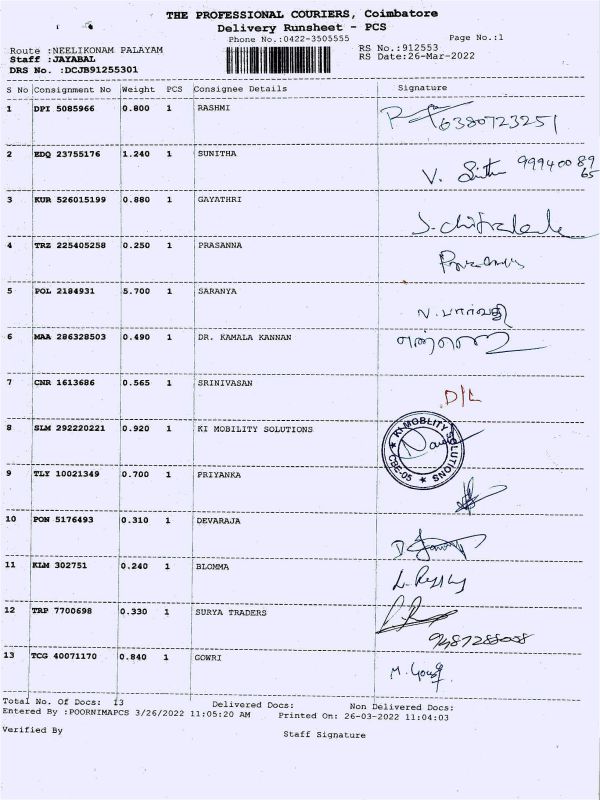 THE PROFESSIONAL COURIERS, Coimbatore
Delivery Runsheet - PCS
Phone No.:0422-3505555
Page No.:1
Route :NEELIKONAM PALAYAM
RS No.:912553
Staff :JAYABAL
RS Date:26-Mar-2022
DRS No. :DCJB91255301
S No Consignment No Weight PCS Consignee Details Signature
1 DPI 5085966 0.800 1 RASHMI 6380723251
2 EDQ 23755176 1.240 1 SUNITHA V. 99940089
65
3 KUR 526015199 0.880 1 GAYATHRI
4 TRZ 225405258 0.250 1 PRASANNA
5 POL 2184931 5.700 1 SARANYA N. பார்வதி
6 MAA 286328503 0.490 1 DR. KAMALA KANNAN
7 CNR 1613686 0.565 1 SRINIVASAN D/L
8 SLM 292220221 0.920 1 KI MOBILITY SOLUTIONS
KI MOBLITY SOLUTIONS
CBE-05
9 TLY 10021349 0.700 1 PRIYANKA
10 PON 5176493 0.310 1 DEVARAJA
11 KLM 302751 0.240 1 BLOMMA
12 TRP 7700698 0.330 1 SURYA TRADERS
13 TCG 40071170 0.840 1 GOWRI M. Gowri
Total No. Of Docs: 13 Delivered Docs: Non Delivered Docs:
Entered By :POORNIMAPCS 3/26/2022 11:05:20 AM Printed On: 26-03-2022 11:04:03
Verified By Staff Signature